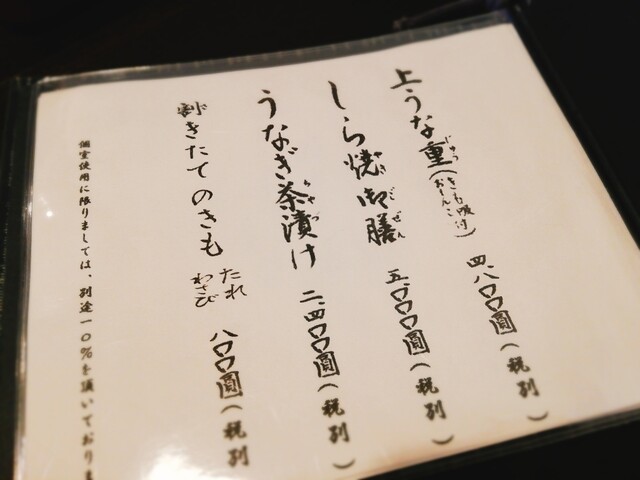 上うな重(きも吸付 おしんこ) 四、八〇〇圓(税別)
じゅう
しら焼御膳 五、〇〇〇圓(税別)
やきごぜん
うなぎ茶漬け 二、四〇〇圓(税別)
ちゃづ
割きたてのきも たれ わさび 八〇〇圓(税別
個室使用に限りましては、別途一〇%を頂いておりま